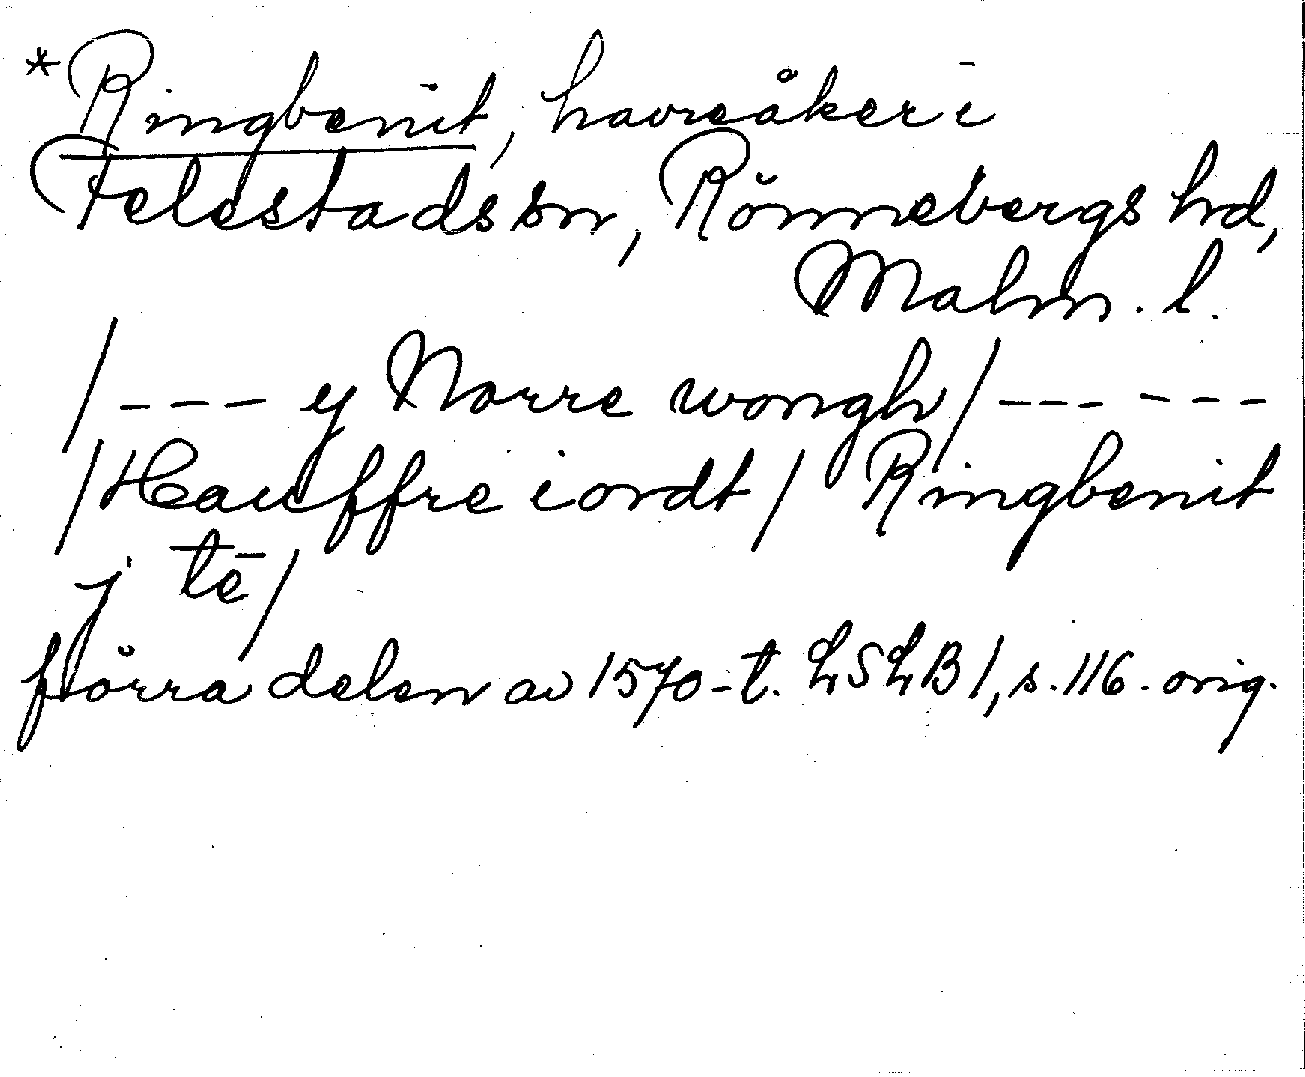 *Ringbenit, havreåker i
Felestads sn, Rönnebergs hd,
Malm. l.
/--- y Norre wongh/--- ---
/Hauffre iordt/ Ringbenit
j tē/
förra delen av 1570-t. LSLB 1, s. 116. orig.